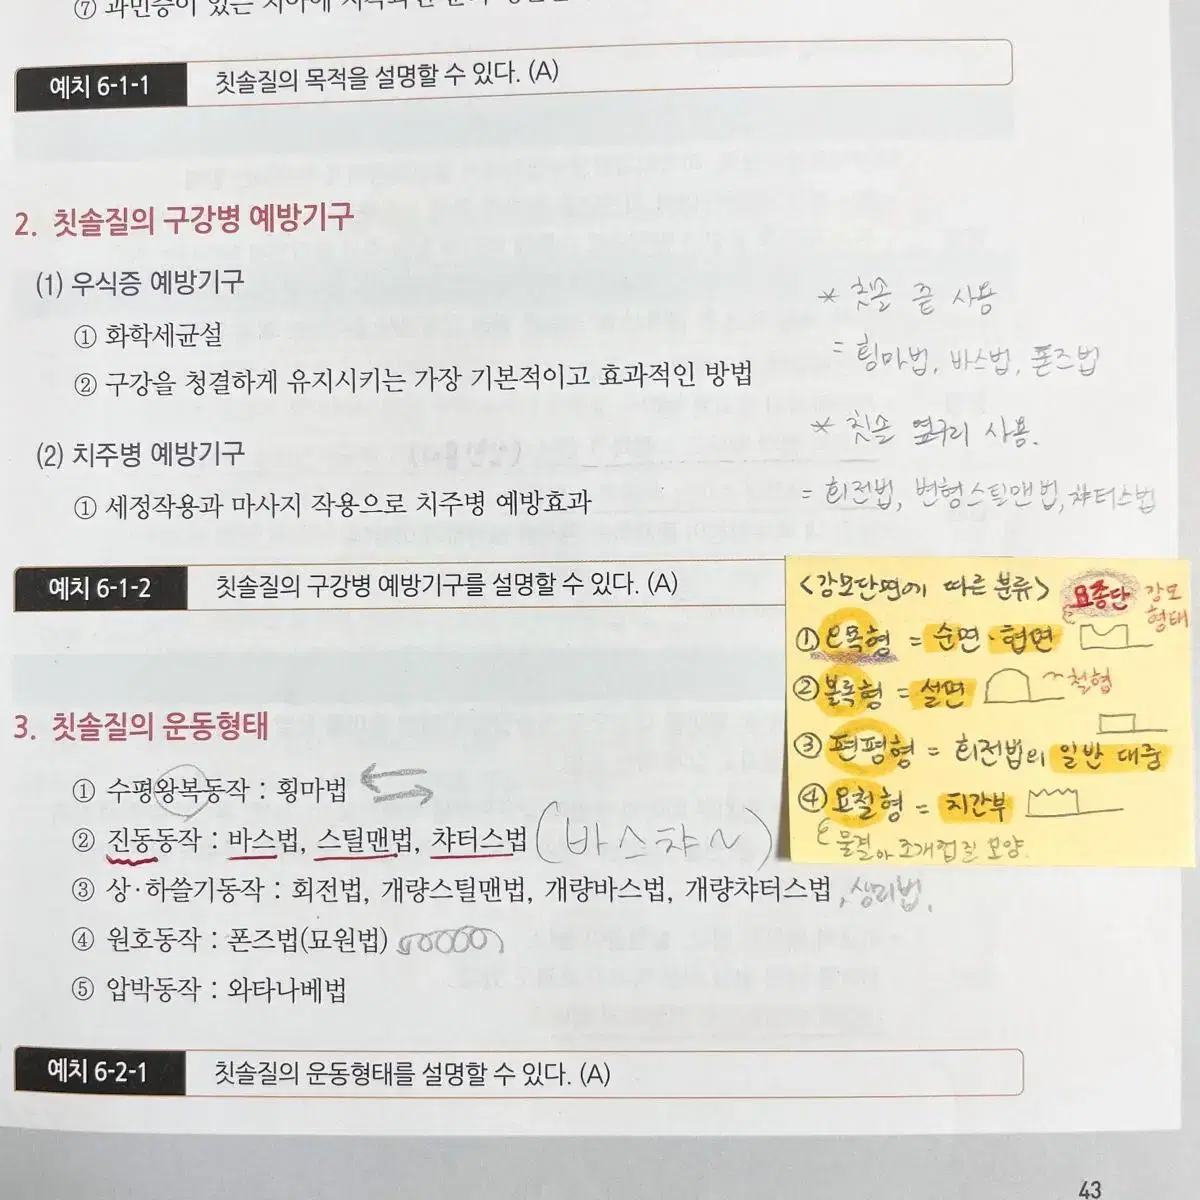 ⑦ 과민증이 있는 치아에
예치 6-1-1 칫솔질의 목적을 설명할 수 있다. (A)
2. 칫솔질의 구강병 예방기구
(1) 우식증 예방기구
① 화학세균설
② 구강을 청결하게 유지시키는 가장 기본적이고 효과적인 방법
(2) 치주병 예방기구
① 세정작용과 마사지 작용으로 치주병 예방효과
* 칫솔 끝 사용
= 횡마법, 바스법, 폰즈법
* 칫솔 옆구리 사용.
= 회전법, 변형스틸맨법, 챠터스법
예치 6-1-2 칫솔질의 구강병 예방기구를 설명할 수 있다. (A)
<강모단면에 따른 분류> 요종단 강모
형태
① 오목형 = 순면·협면
② 볼록형 = 설면 ~철형
③ 편평형 = 회전법의 일반 대중
④ 요철형 = 치간부
물결 or 조개껍질 모양.
3. 칫솔질의 운동형태
① 수평왕복동작 : 횡마법
② 진동동작 : 바스법, 스틸맨법, 챠터스법 (바스챠~)
③ 상·하쓸기동작 : 회전법, 개량스틸맨법, 개량바스법, 개량챠터스법, 생리법.
④ 원호동작 : 폰즈법(묘원법)
⑤ 압박동작 : 와타나베법
예치 6-2-1 칫솔질의 운동형태를 설명할 수 있다. (A)
43